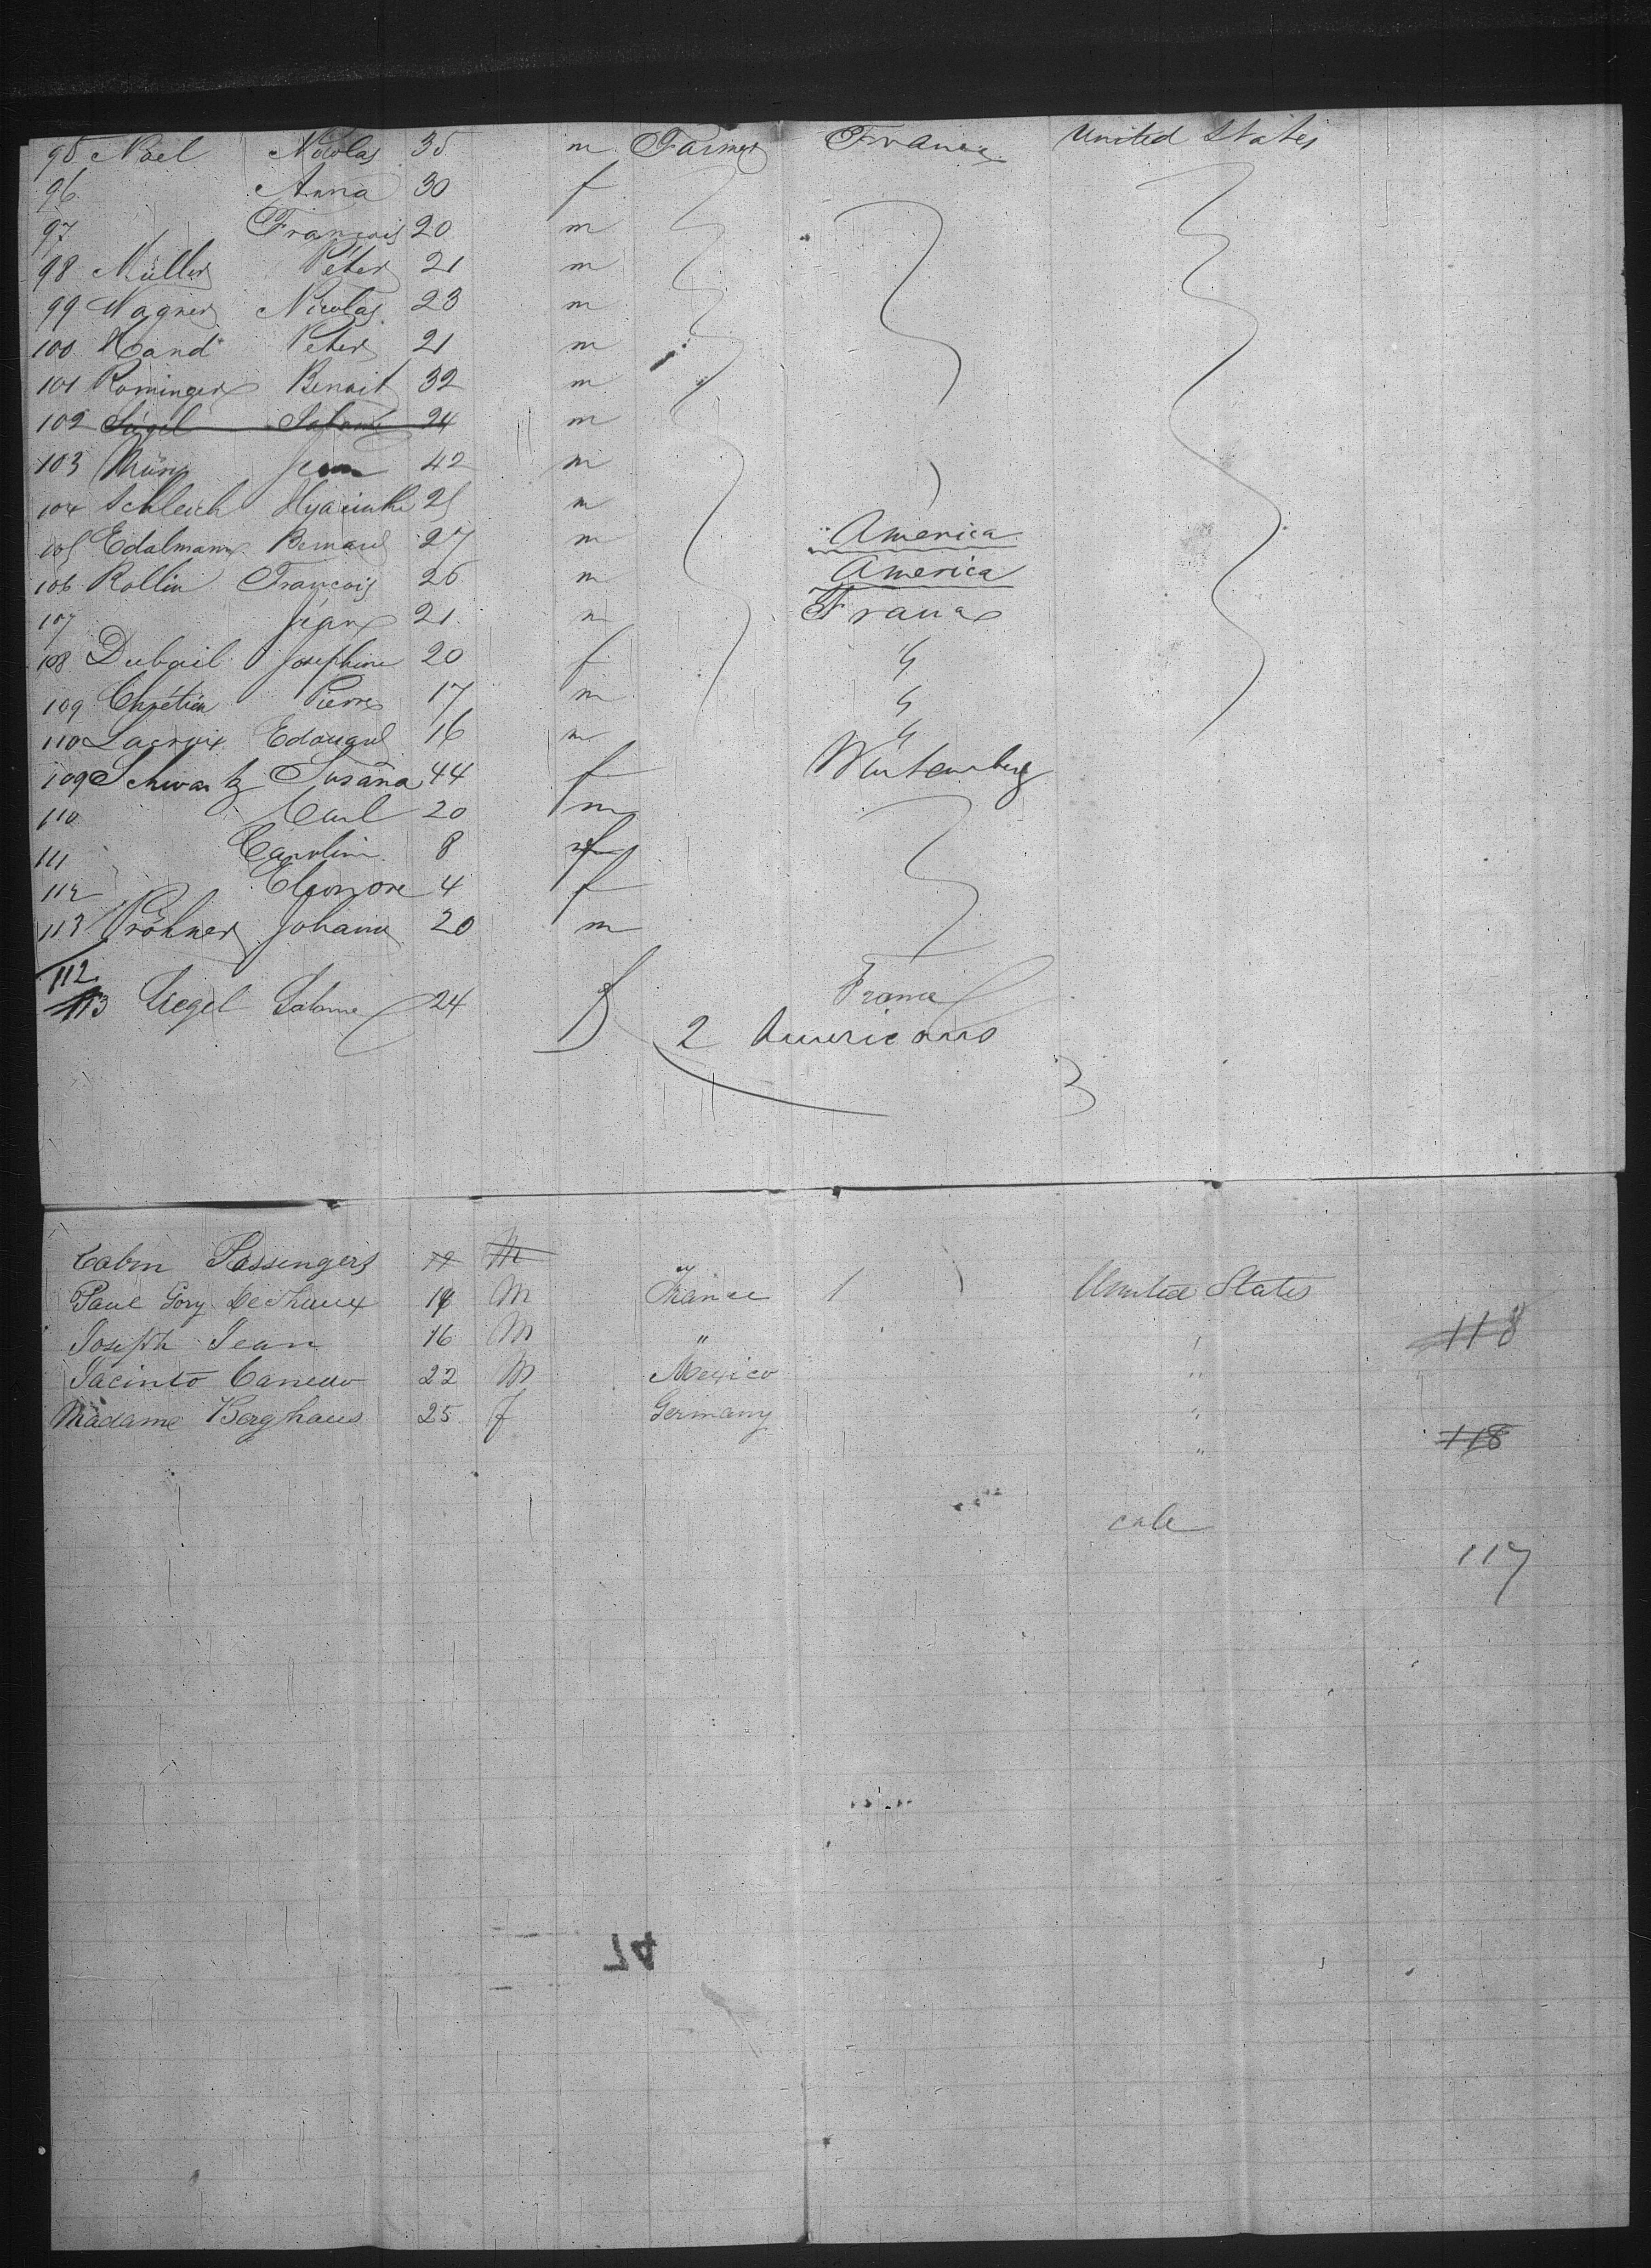 95 Noel Nicolas 35 m Farmer France United States
96 Anna 30 f
97 François 20 m
98 Müller Peter 21 m
99 Wagner Nicolas 23 m
100 Hand Peter 21 m
101 Rominger Benoit 32 m
102 Siegel Salome 24 m
103 Jean 42 m
104 Schleich Hyacinthe 25 m
105 Edalmann Bernard 27 m America
106 Rollin François 26 m America
107 Jean 21 m France
108 Dubail Josephine 20 f "
109 Chrétien Pierre 17 m "
110 Lacroix Edouard 16 m "
109 Schwartz Susana 44 f Wurtemberg
110 Carl 20 m
111 Carolin 8 f
112 Eleonore 4 f
113 Pröhner Johann 20 m
112
113 Siegel Salome 24 f France
2 Americans
3
Cabin Passengers 19 M
Paul Gory 19 M France 1 United States
Joseph Jean 16 M " " 118
Jacinto 22 M Mexico "
Madame Berghaus 25 f Germany "
" 118
117
74